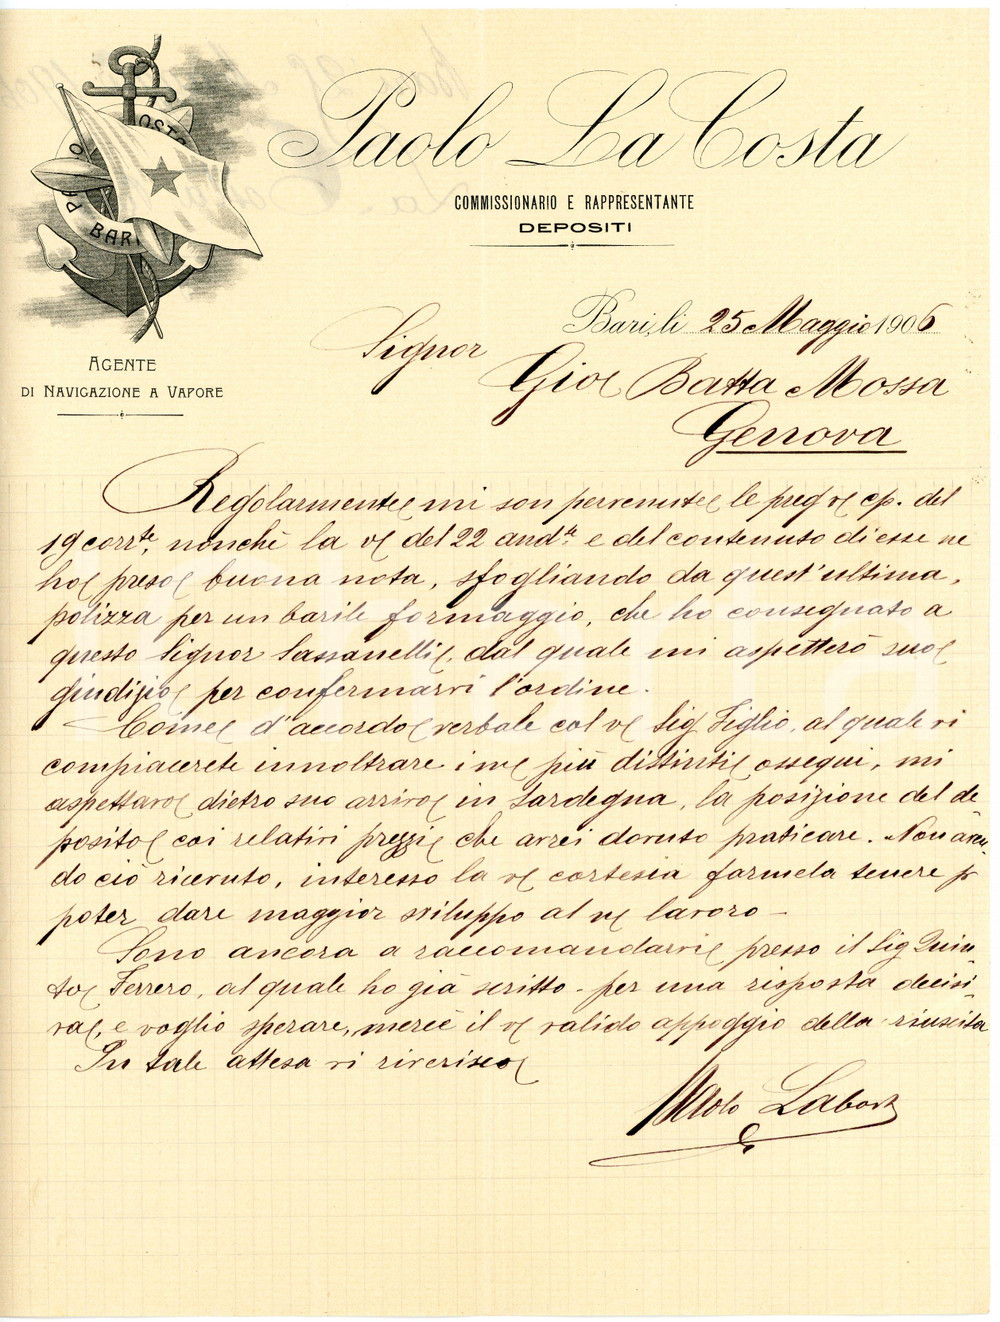 Paolo La Costa
COMMISSIONARIO E RAPPRESENTANTE
DEPOSITI
PAOLO COSTA
BARI
AGENTE
DI NAVIGAZIONE A VAPORE
Bari, li 25 Maggio 1906
Signor
Gio Batta Mossa
Genova
Regolarmente mi son pervenute le preg v/ cp. del
19 corrte, nonchè la v/ del 22 andte e del contenuto di esse ne
ho preso buona nota, sfogliando da quest'ultima,
polizza per un barile formaggio, che ho consegnato a
questo Signor Sassanelli, dal quale mi aspetterò suo
giudizio per confermarvi l'ordine.
Come d'accordo verbale col v/ Sig Figlio, al quale vi
compiacerete innoltrare i m/ più distinti ossequi, mi
aspettavo dietro suo arrivo in Sardegna, la posizione del de
posito coi relativi prezzi che avrei dovuto praticare. Non aven-
do ciò ricevuto, interesso la v/ cortesia farmela tenere pr
poter dare maggior sviluppo al v/ lavoro -
Sono ancora a raccomandarvi presso il Sig Quin
to Ferrero, al quale ho già scritto - per una risposta decisi-
va, e voglio sperare, mercè il v/ valido appoggio della riuscita
In tale attesa vi riverisco
Paolo